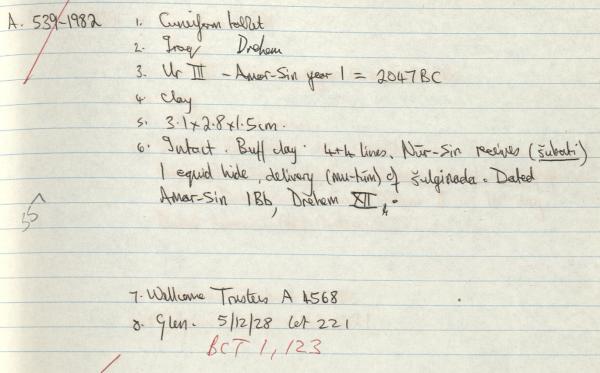 A. 539-1982 1. Cuneiform tablet
2. Iraq Drehem
3. Ur III - Amar-Sin year 1 = 2047 BC
4. Clay
5. 3.1 x 2.8 x 1.5 cm.
6. Intact. Buff clay. 4+4 lines. Nūr-Sin receives (šubati)
1 equid hide, delivery (mu-túm) of šulginada. Dated
Amar-Sin 1Bb, Drehem XII.
7. Wellcome Trustees A 4568
8. Glen. 5/12/28 Lot 221
BCT 1, 123